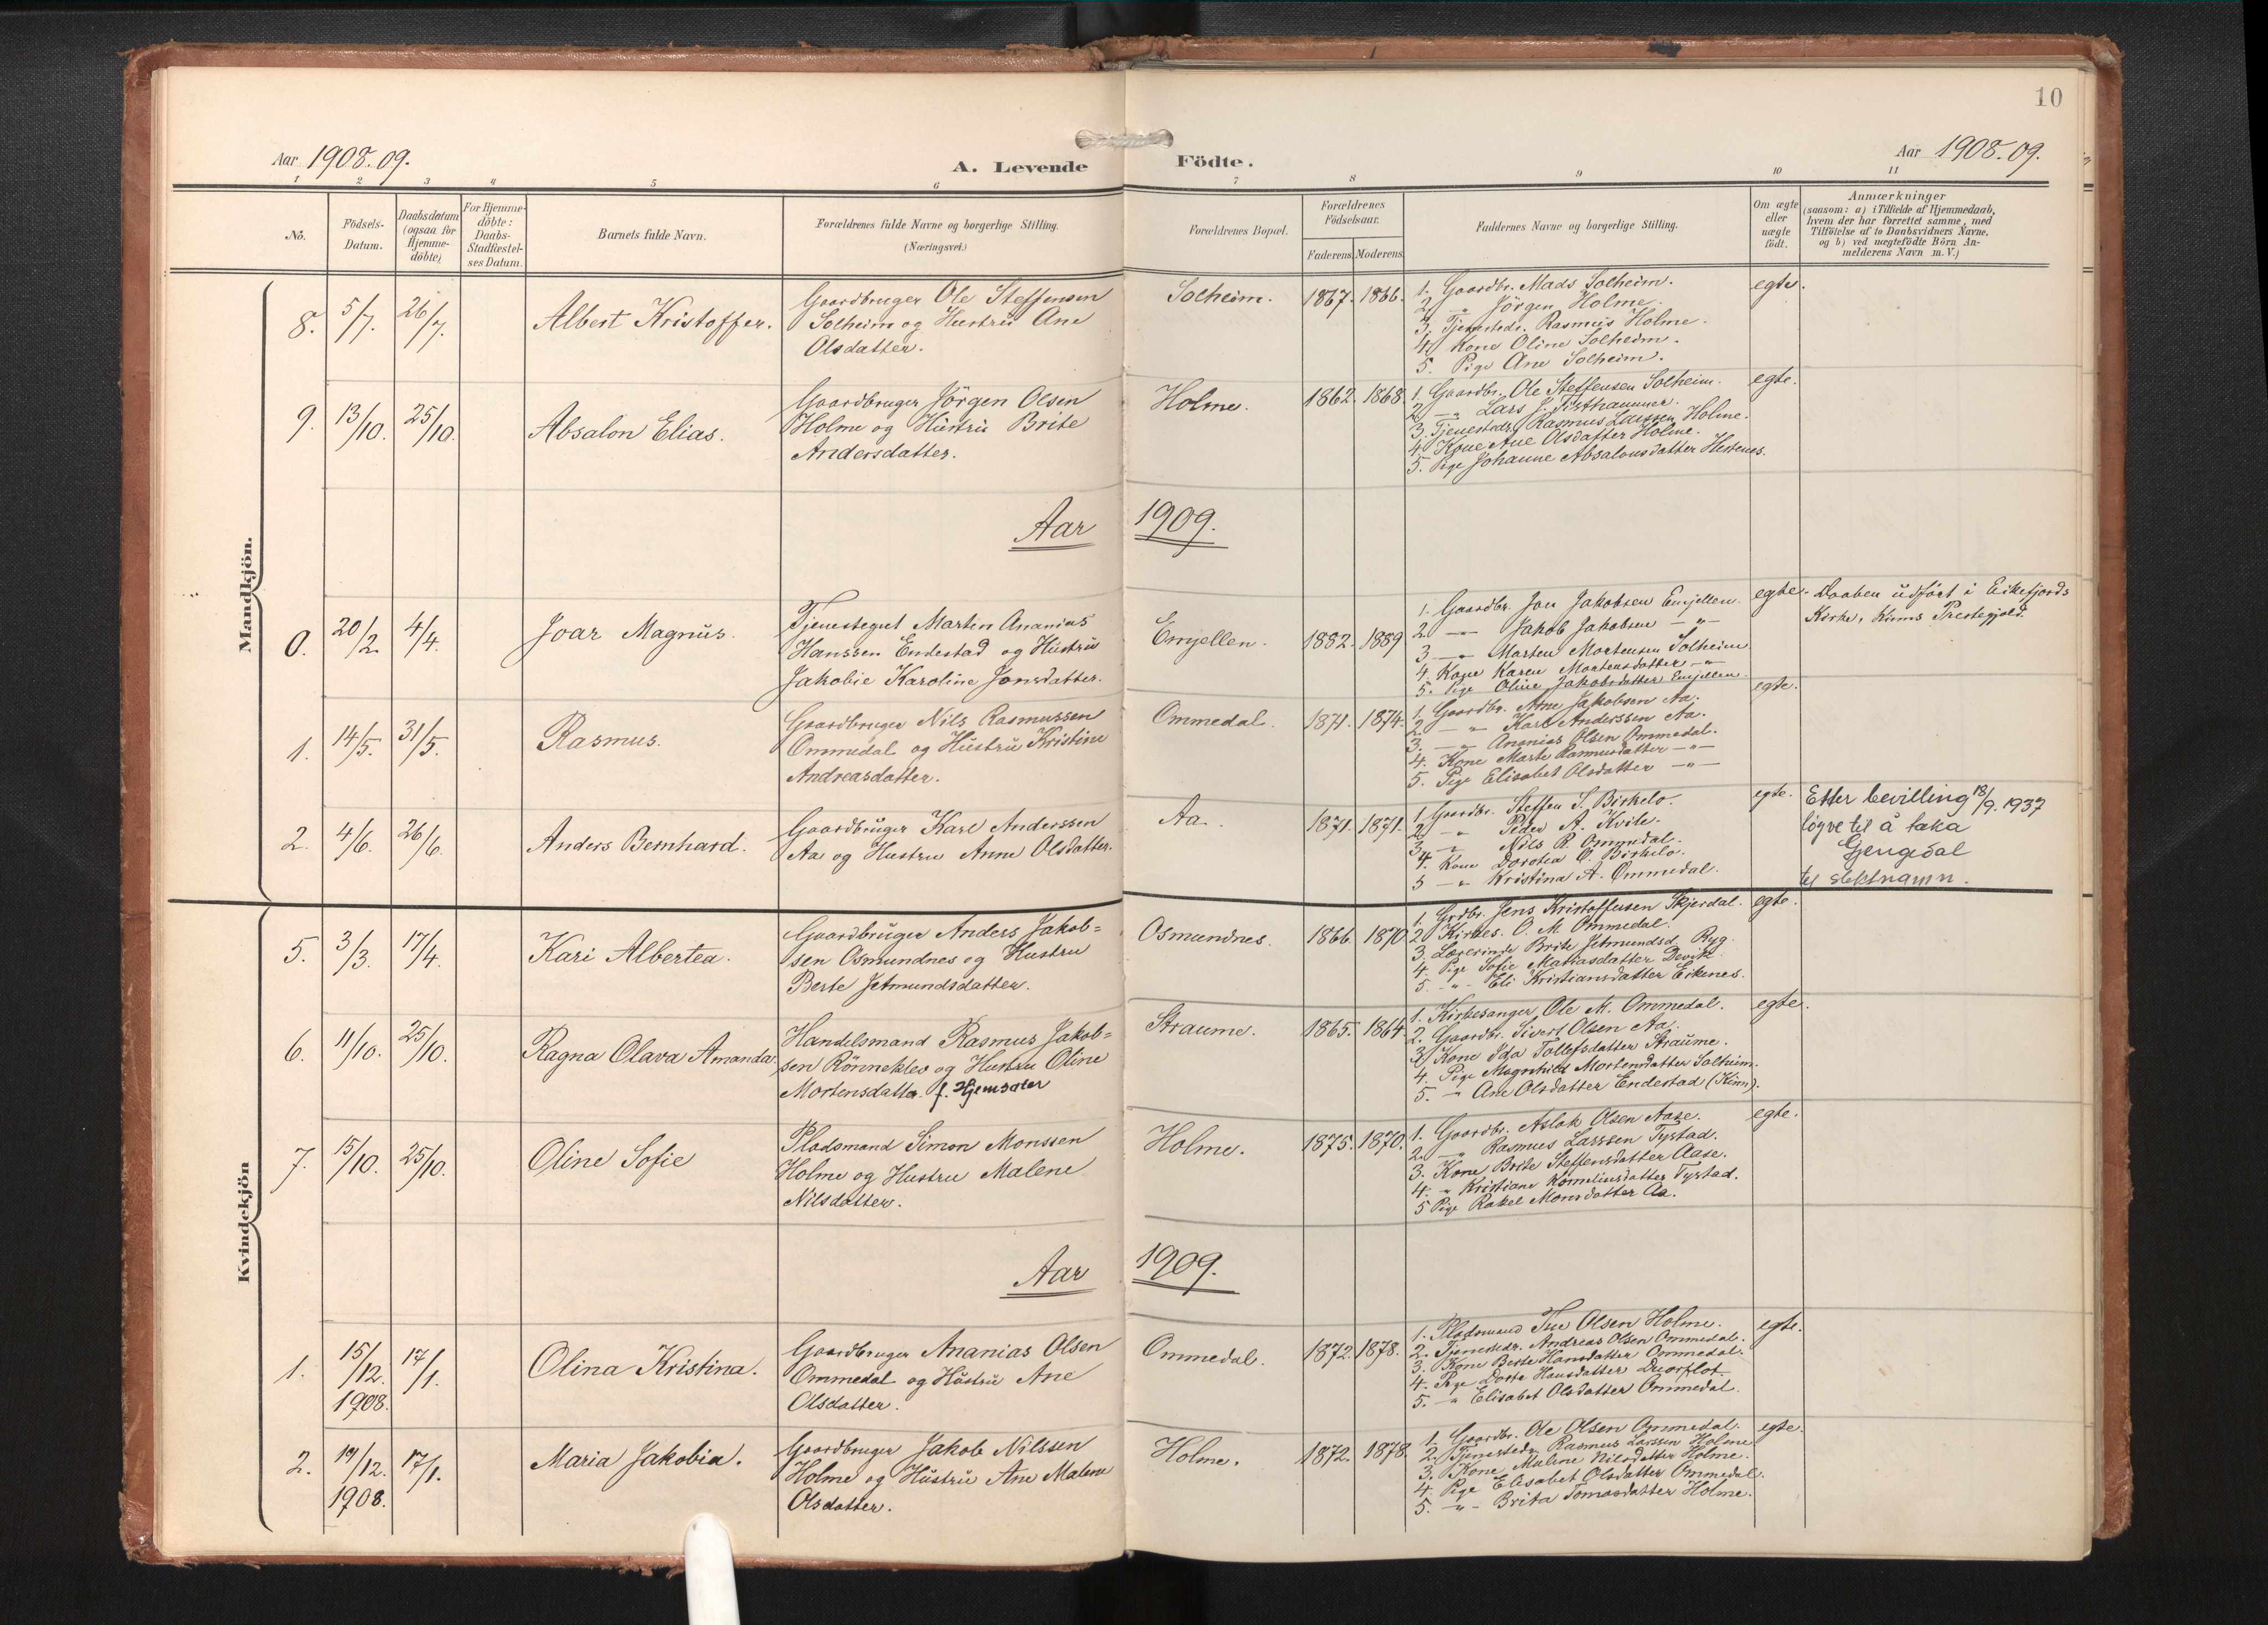 10
Aar 1908.09.
A. Levende
Födte.
Aar 1908.09.
1 2 3 4 5 6 7 8 9 10 11
No.
Födsels-
Datum.
Daabsdatum
(ogsaa for
Hjemme-
döbte)
For Hjemme-
döbte:
Daabs-
Stadfæstel-
ses Datum.
Barnets fulde Navn.
Forældrenes fulde Navne og borgerlige Stilling.
(Næringsvei.)
Forældrenes Bopæl.
Forældrenes
Födselsaar.
Faderens Moderens
Faddernes Navne og borgerlige Stilling.
Om ægte
eller
uægte
födt.
Anmærkninger
(saasom: a) i Tilfælde af Hjemmedaab,
hvem der har forrettet samme, med
Tilföielse af to Daabsvidners Navne,
og b) ved uægtefödte Börn An-
melderens Navn m. V.)
Mandkjön.
8. 5/7. 26/7. Albert Kristoffer.
Gaardbruger Ole Steffensen
Solheim og Hustru Ane
Olsdatter.
Solheim. 1867. 1866.
1. Gaardbr. Mads Solheim.
2. " Jörgen Holme.
3. Tjenestedr. Rasmus Holme.
4. Kone Oline Solheim.
5. Pige Ane Solheim.
egte.
9. 13/10. 25/10. Absalon Elias.
Gaardbruger Jörgen Olsen
Holme og Hustru Brite
Andersdatter.
Holme. 1862. 1868.
1. Gaardbr. Ole Steffensen Solheim.
2. — " Lars J.
3. Tjenestedr. Rasmus Larssen Holme.
4. Kone Ane Olsdatter Holme.
5. Pige Johanne Absalonsdatter Hestenes.
egte.
Aar 1909.
0. 20/2. 4/4. Joar Magnus.
Tjenestegut Martin Ananias
Hanssen Endestad og Hustru
Jakobie Karoline Jonsdatter.
Emjellen. 1882. 1889
1. Gaardbr. Jon Jakobsen Emjellen.
2. — Jakob Jakobsen — " —
3 — " Morten Mortensen Solheim
4. Kone Karen Mortensdatter — " —
5. Pige Oline Jakobsdatter Emjellen.
egte.
Daaben udfört i Eikefjords
Kirke, Kinns Prestegjeld.
1. 14/5. 31/5. Rasmus.
Gaardbruger Nils Rasmussen
Ommedal og Hustru Kristine
Andreasdatter.
Ommedal. 1871. 1874.
1. Gaardbr. Arne Jakobsen Aa.
2. — " Karl Anderssen Aa.
3. — " Ananias Olsen Ommedal.
4. Kone Marte Rasmusdatter — " —
5. Pige Elisabet Olsdatter — " —
egte.
2. 4/6. 26/6. Anders Bernhard.
Gaardbruger Karl Anderssen
Aa og Hustru Anne Olsdatter.
Aa. 1871. 1871.
1 Gaardbr. Steffen S. Birkelo.
2 — " Peder A. Kvile.
3 — " Nils R. Ommedal.
4. Kone Dorotea O. Birkelo.
5 — " Kristina A. Ommedal.
egte.
Etter bevilling 18/9. 1937
löyve til å taka
Gjengedal
til slektnamn.
Kvindekjön
5. 3/3. 17/4. Kari Albertea.
Gaardbruger Anders Jakob=
sen Osmundnes og Hustru
Berte Jetmundsdatter.
Osmundnes. 1866. 1870
1. Grdbr. Jens Kristoffersen Skjerdal.
2 Kirkes. O. M. Ommedal.
3. Lærerinde Brite Jetmundsd. Ryg
4. Pige Sofie Matiasdatter Devik
5. - " - Eli Kristiansdatter Eikenes.
egte.
6. 11/10. 25/10. Ragna Olava Amanda.
Handelsmand Rasmus Jakob=
sen Rönneklev og Hustru Oline
Mortensdatter f. Hjemsæter
Straume. 1865. 1864
1. Kirkesanger Ole M. Ommedal.
2. Gaardbr. Sivert Olsen Aa.
3. Kone Ida Tollefsdatter Straume.
4. Pige Magnhild Mortensdatter Solheim
5. — " Ane Olsdatter Endestad (Kinn).
egte.
7. 15/10. 25/10. Oline Sofie
Pladsmand Simon Monssen
Holme og Hustru Malene
Nilsdatter.
Holme. 1875. 1870.
1. Gaardbr. Aslak Olsen Aase.
2. — " Rasmus Larssen Tystad.
3. Kone Brite Steffensdatter Aase.
4. — " Kristiane Korneliusdatter Tystad.
5 Pige Rakel Monsdatter Aa.
egte.
Aar 1909.
1. 15/12. 1908. 17/1. Olina Kristina.
Gaardbruger Ananias Olsen
Ommedal og Hustru Ane
Olsdatter.
Ommedal. 1872. 1878.
1. Pladsmand Tue Olsen Holme.
2. Tjenestedr. Andreas Olsen Ommedal.
3. Kone Berte Hansdatter Ommedal.
4. Pige Dorte Hansdatter
5. — " Elisabet Olsdatter Ommedal.
egte.
2. 19/12. 1908. 17/1. Maria Jakobia.
Gaardbruger Jakob Nilssen
Holme og Hustru Ane Malene
Olsdatter.
Holme. 1872. 1878.
1. Gaardbr. Ole Olsen Ommedal.
2. Tjenestedr. Rasmus Larssen Holme
3. Kone Malene Nilsdatter Holme.
4. Pige Elisabet Olsdatter Ommedal.
5. — " — Brita Tomasdatter Holme.
egte.